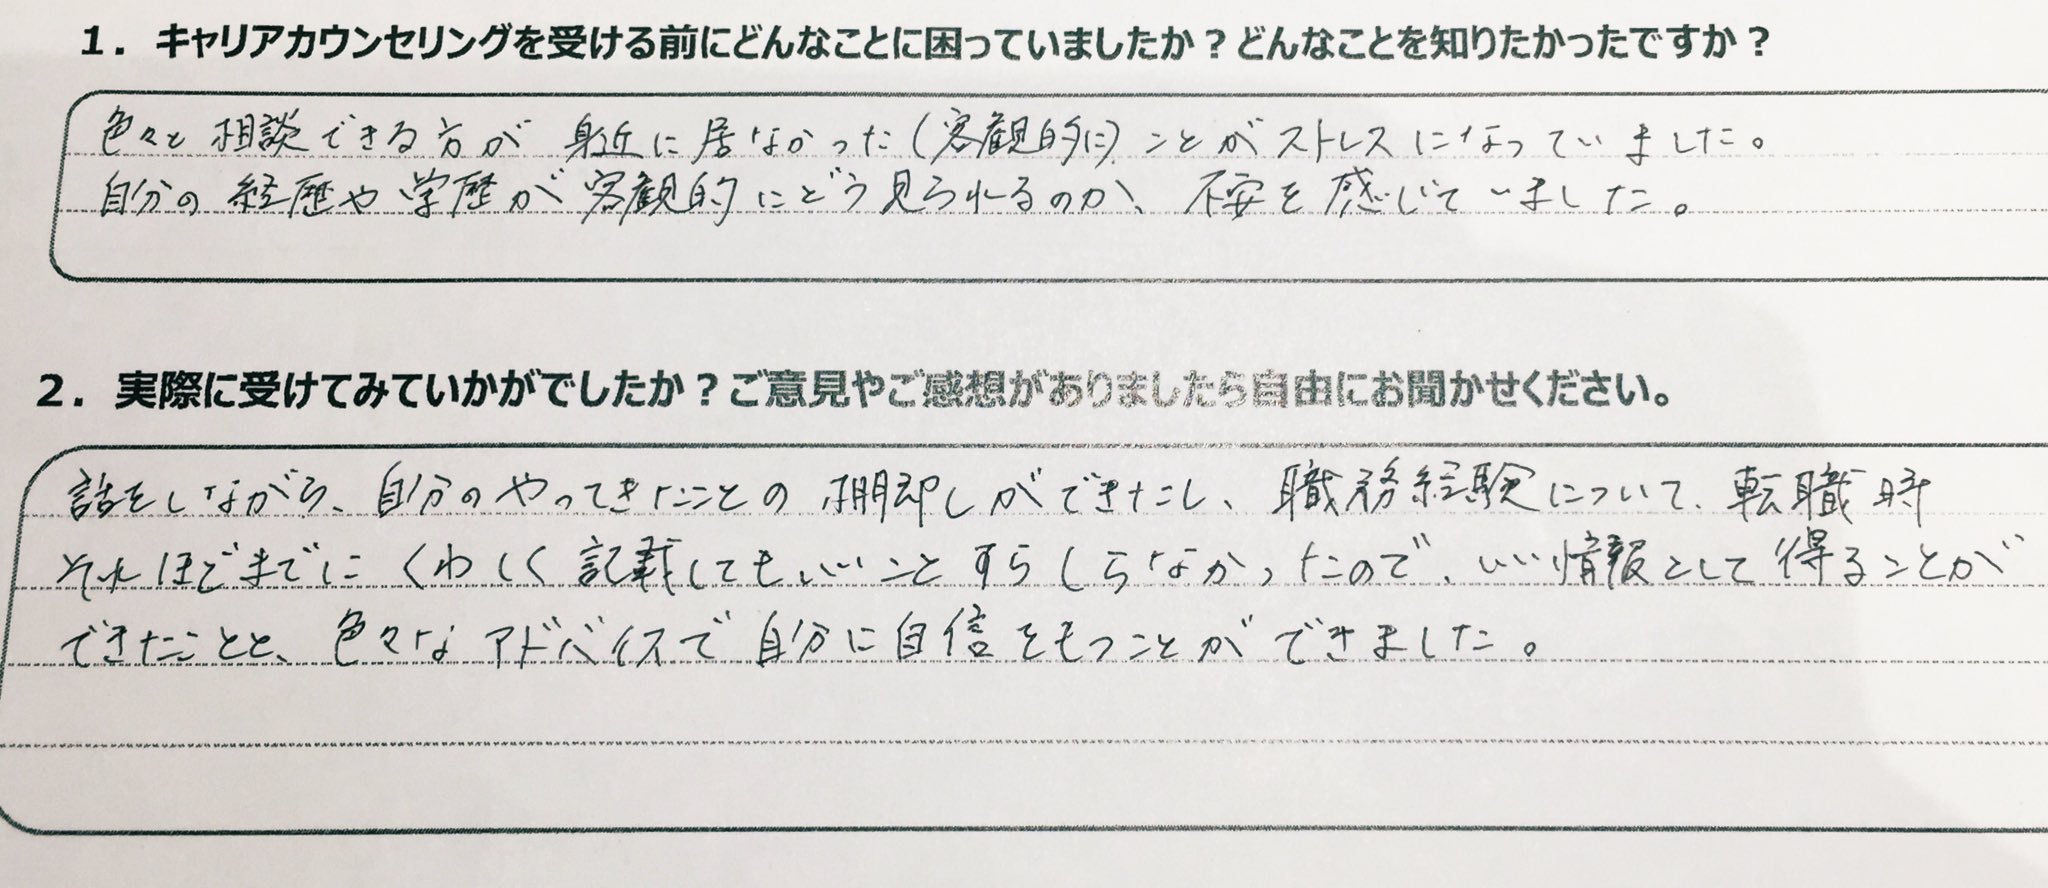 1．キャリアカウンセリングを受ける前にどんなことに困っていましたか？どんなことを知りたかったですか？
色々と相談できる方が身近に居なかった(客観的に)ことがストレスになっていました。
自分の経歴や学歴が客観的にどう見られるのか、不安を感じていました。
2．実際に受けてみていかがでしたか？ご意見やご感想がありましたら自由にお聞かせください。
話をしながら、自分のやってきたことの棚卸しができたし、職務経験について、転職時
それほどまでにくわしく記載してもいいことすらしらなかったので、いい情報として得ることが
できたことと、色々なアドバイスで自分に自信をもつことができました。